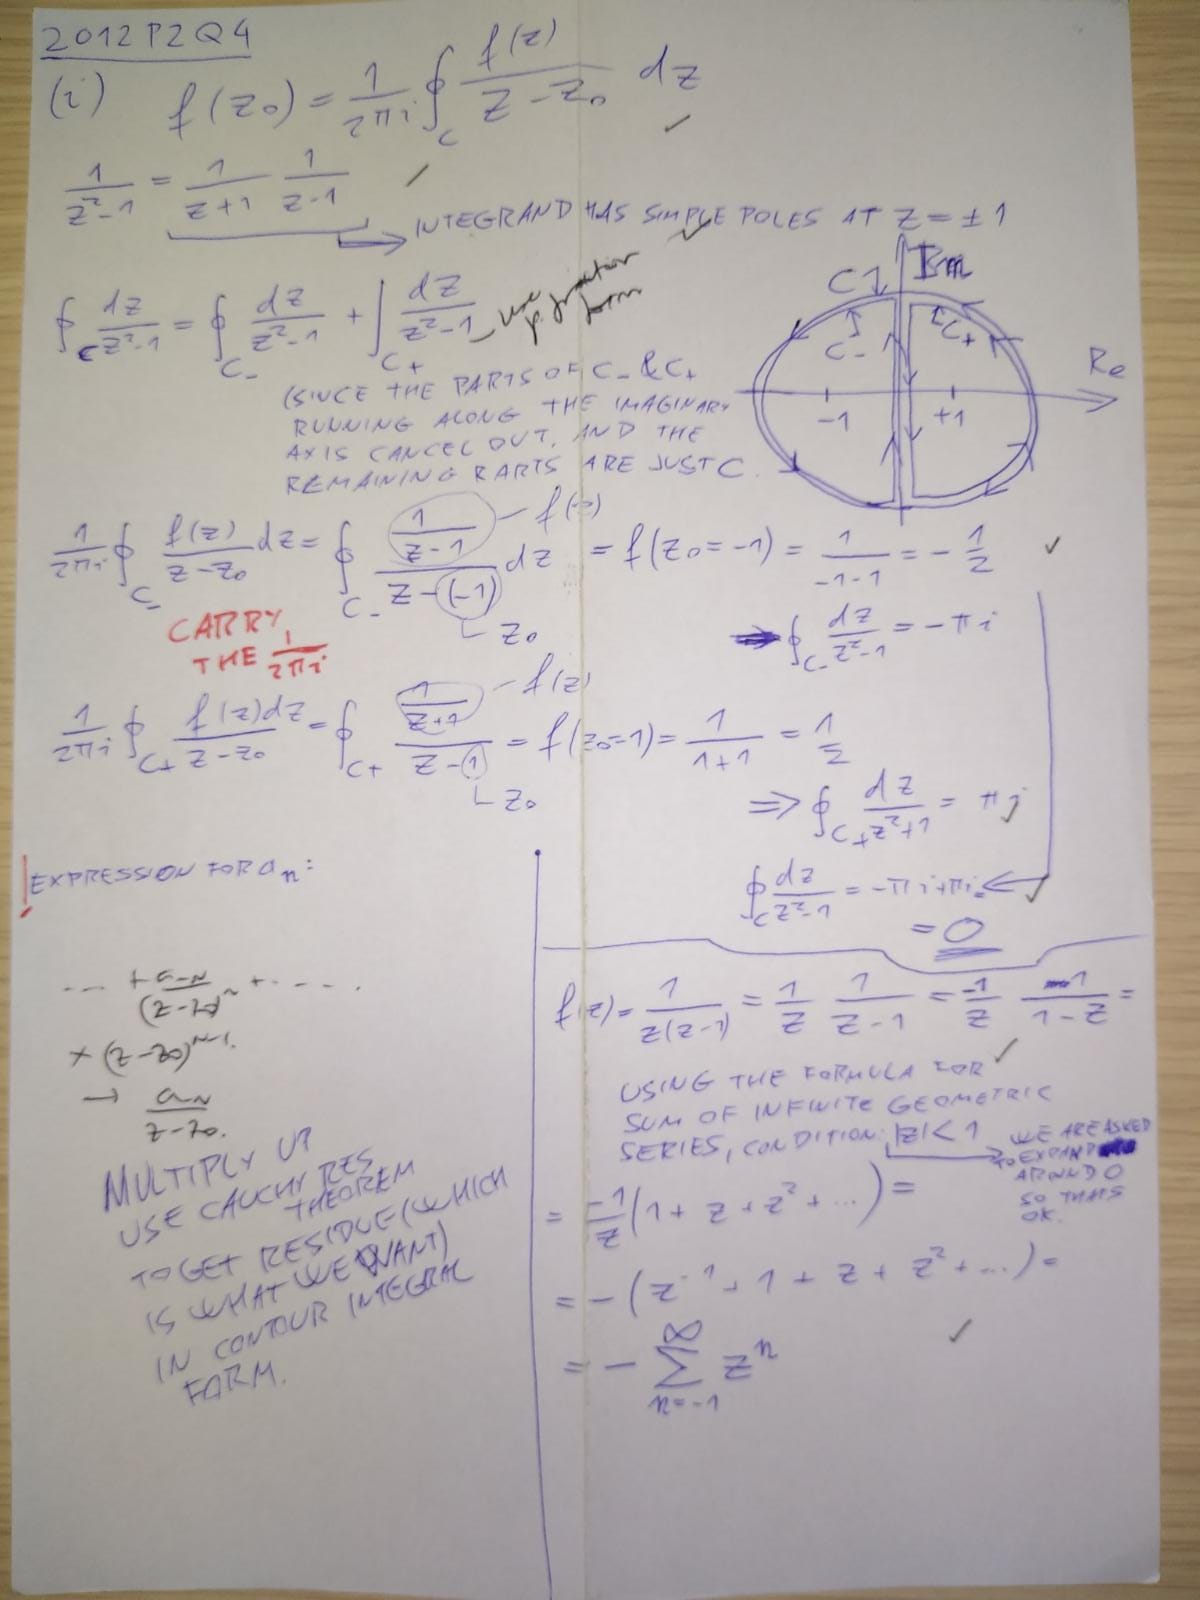 2012 P2 Q4
(i) f(z₀) = 1/(2πi) ∮_C f(z)/(z - z₀) dz ✓
1/(z²-1) = 1/(z+1) 1/(z-1) ✓
→ INTEGRAND HAS SIMPLE POLES AT z = ±1 ✓
∮_C dz/(z²-1) = ∮_C₋ dz/(z²-1) + ∫_C₊ dz/(z²-1)
use p. fraction form
C Im
C₋ C₊
Re
-1 +1
(SINCE THE PARTS OF C₋ & C₊
RUNNING ALONG THE IMAGINARY
AXIS CANCEL OUT, AND THE
REMAINING PARTS ARE JUST C.
1/(2πi) ∮_C₋ f(z)/(z-z₀) dz = ∮_C₋ (1/(z-1))/(z-(-1)) dz = f(z₀=-1) = 1/(-1-1) = -1/2 ✓
f(z)
z₀
CARRY
THE 1/(2πi)
⇒ ∮_C₋ dz/(z²-1) = -πi
1/(2πi) ∮_C₊ f(z)dz/(z-z₀) = ∮_C₊ (1/(z+1))/(z-1) = f(z₀=1) = 1/(1+1) = 1/2
f(z)
z₀
⇒ ∮_C₊ dz/(z²+1) = πi ✓
∮_C dz/(z²-1) = -πi+πi ✓
= 0
! EXPRESSION FOR aₙ:
... + a₋N/(z-z₀)ᴺ + ....
× (z-z₀)ᴺ⁻¹.
→ a₋N/(z-z₀).
MULTIPLY UP
USE CAUCHY RES
THEOREM
TO GET RESIDUE (WHICH
IS WHAT WE WANT)
IN CONTOUR INTEGRAL
FORM.
f(z) = 1/(z(z-1)) = 1/z 1/(z-1) = -1/z 1/(1-z) =
✓
USING THE FORMULA FOR
SUM OF INFINITE GEOMETRIC
SERIES, CONDITION: |z|<1
→ WE ARE ASKED
TO EXPAND
AROUND 0
SO THATS
OK.
= -1/z (1 + z + z² + ...) =
= -(z⁻¹ + 1 + z + z² + ...) =
= - ∑_{n=-1}^∞ zⁿ ✓